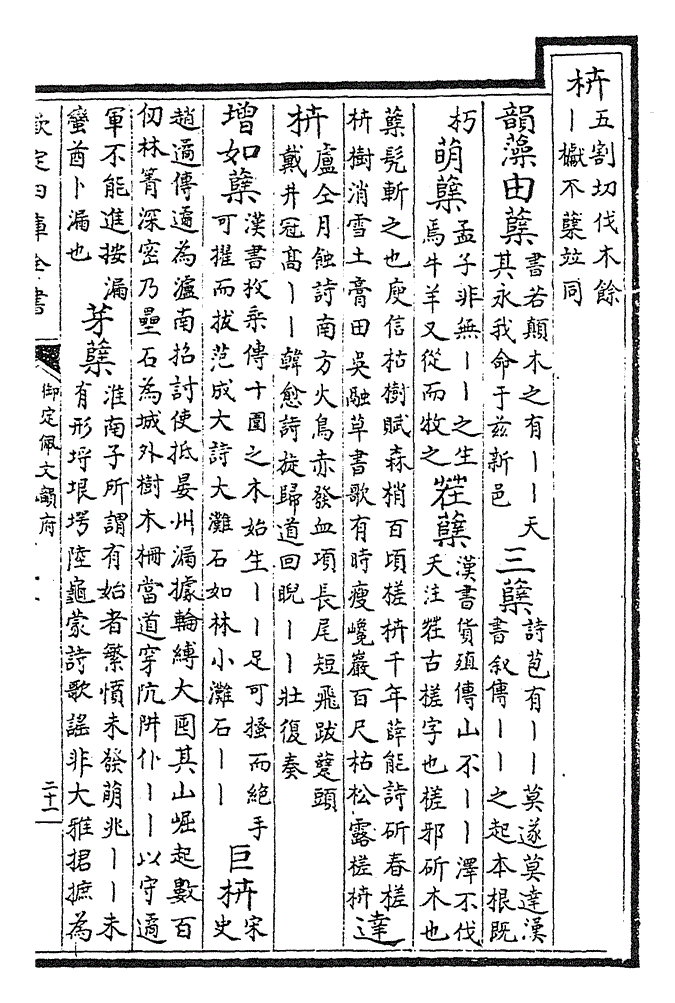 枿五割切伐木餘
丨櫱不蘖竝同
韻藻由蘖書若顛木之有丨丨天
其永我命于兹新邑
三蘖詩苞有丨丨莫遂莫達漢
書叙傳丨丨之起本根既
朽
萌蘖孟子非無丨丨之生
焉牛羊又從而牧之
茬蘖漢書貨殖傳山不丨丨澤不伐
夭注茬古槎字也槎邪斫木也
蘖髠斬之也庾信枯樹賦森梢百頃槎枿千年薛能詩斫春槎
枿樹消雪土膏田吳融草書歌有時瘦巉巖百尺枯松露槎枿
達枿盧仝月蝕詩南方火鳥赤發血項長尾短飛跋躠頭
戴井冠髙丨丨韓愈詩旋歸道回睨丨丨壯復奏
增如蘖漢書枚乘傳十圍之木始生丨丨足可搔而絶手
可擢而拔范成大詩大灘石如林小灘石丨丨
巨枿宋
史
趙遹傳遹為瀘南招討使抵晏州漏據輪縛大囤其山崛起數百
仞林箐深密乃壘石為城外樹木柵當道穿阬阱仆丨丨以守遹
軍不能進按漏
蠻酋卜漏也
芽蘖淮南子所謂有始者繁憤未發萌兆丨丨未
有形埒垠堮陸龜蒙詩歌謡非大雅捃摭為
欽定四庫全書
御定佩文韻府
二十一